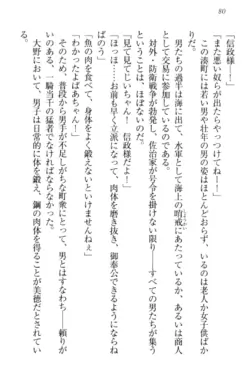 80
「信政様！──」
「また悪い奴らがやってきたら、やっつけてねー！」
この湊町には若い男や壮年の男の姿はほとんどおらず、いるのは老人か女子供ばか
りだ。
男たちの過半は海に出て、水軍として海上の哨戒にあたっているか、あるいは商人
として交易に参加しているのである。
対外・防衛戦争が勃発し、佐治家が号令を掛けない限り──すべての男たちが集う
ことは、ほぼないのだ。
「見て見てじいちゃん！　信政様だよ！」
「ほっほ……お前も早く立派になって、肉体を磨き抜き、御奉公できるようにならねば
ばのう」
「魚の肉を食べて、身体をよく鍛えないといけませんねぇ」
「わかったよばあちゃん！」
そのため、普段から男手が不足しがちな町衆にとって、男とはすなわち──頼りが
いのある、一騎当千の猛者でなければならなかった。
大野において、男子は日常的に体を鍛え、鋼の肉体を得ることが美徳とされてい
る。